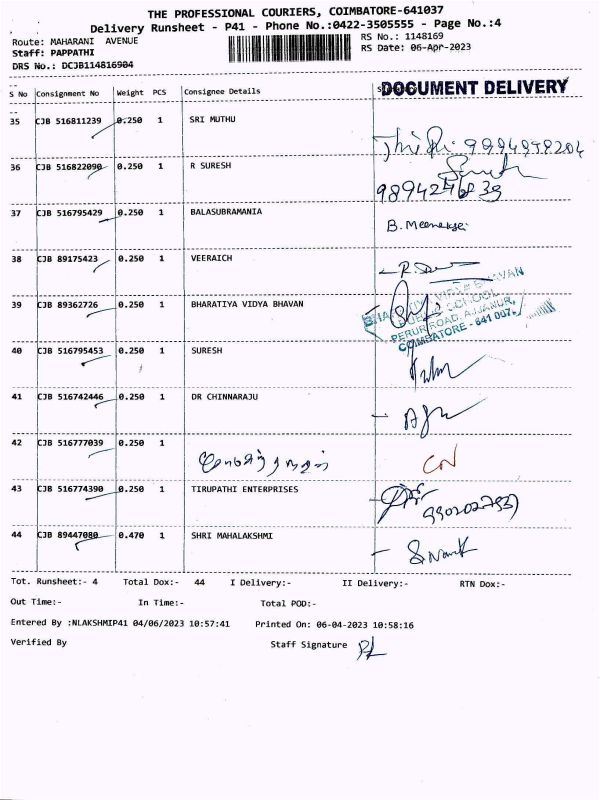 THE PROFESSIONAL COURIERS, COIMBATORE-641037
Delivery Runsheet - P41 - Phone No.:0422-3505555 - Page No.:4
Route: MAHARANI AVENUE
RS No.: 1148169
Staff: PAPPATHI
RS Date: 06-Apr-2023
DRS No.: DCJB114816904
DOCUMENT DELIVERY
S No Consignment No Weight PCS Consignee Details
35 CJB 516811239 0.250 1 SRI MUTHU
36 CJB 516822090 0.250 1 R SURESH
37 CJB 516795429 0.250 1 BALASUBRAMANIA
B. Meenakshi
38 CJB 89175423 0.250 1 VEERAICH
39 CJB 89362726 0.250 1 BHARATIYA VIDYA BHAVAN
BHARATIYA VIDYA BHAVAN
PUBLIC SCHOOL
PERUR ROAD, AJJANUR,
COIMBATORE - 641 007.
40 CJB 516795453 0.250 1 SURESH
41 CJB 516742446 0.250 1 DR CHINNARAJU
42 CJB 516777039 0.250 1
43 CJB 516774390 0.250 1 TIRUPATHI ENTERPRISES
44 CJB 89447080 0.470 1 SHRI MAHALAKSHMI
Tot. Runsheet:- 4 Total Dox:- 44 I Delivery:- II Delivery:- RTN Dox:-
Out Time:- In Time:- Total POD:-
Entered By :NLAKSHMIP41 04/06/2023 10:57:41 Printed On: 06-04-2023 10:58:16
Verified By Staff Signature